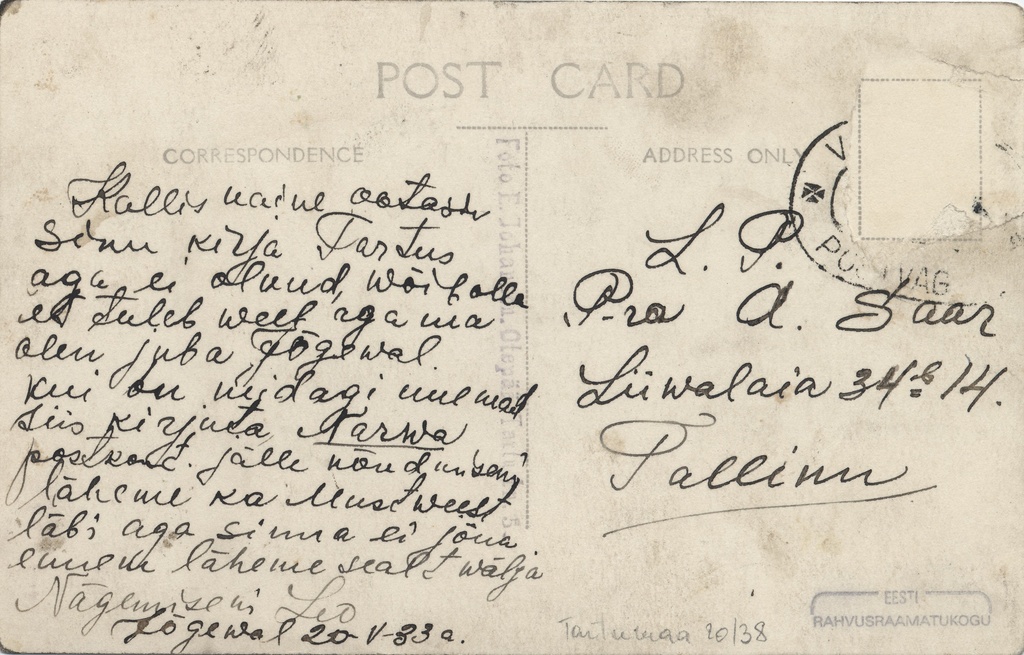 POST CARD
CORRESPONDENCE
ADDRESS ONLY
Kallis naine ootasin
Sinu kirja Tartus
aga ei olnud, wõib olla
et tuleb weel aga ma
olen juba Jõgewal.
kui on midagi uuemad
siis kirjuta Narwa
postkont. jälle nõudmiseni
läheme ka Mustweest
läbi aga sinna ei jõua
ennem läheme sealt wälja
Nägemiseni Leo
Jõgewal 20-V-33 a.
Foto E. Johanson. Olepä
L. P.
Pra A. Saar
Liiwalaia 34b 14.
Tallinn
V
POSTVAG
Tartumaa 20/38
EESTI
RAHVUSRAAMATUKOGU